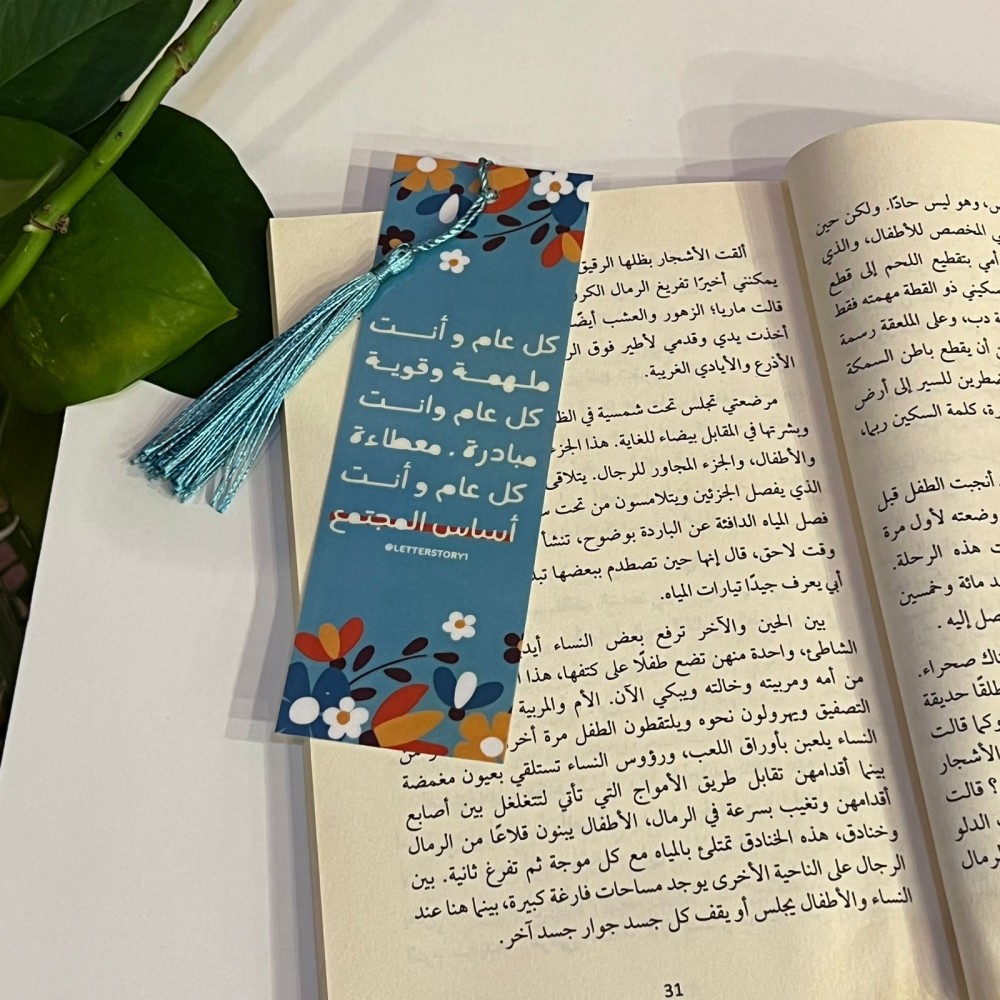 كل عام و أنت
ملهمة وقوية
كل عام وانت
مبادرة . معطاءة
كل عام و أنت
أساس المجتمع
@LETTERSTORY1
ألقت الأشجار بظلها الرقيق
يمكنني أخيرًا تفريغ الرمال
قالت ماريا؛ الزهور والعشب
أخذت يدي وقدمي لأطير فوق
الأذرع والأيادي الغريبة.
مرضعتي تجلس تحت شمسية في
وبشرتها في المقابل بيضاء للغاية. هذا
والأطفال، والجزء المجاور للرجال. يتلاقى
الذي يفصل الجزئين ويتلامسون من تحت
فصل المياه الدافئة عن الباردة بوضوح، تنشأ
وقت لاحق، قال إنها حين تصطدم ببعضها
أبي يعرف جيدًا تيارات المياه.
بين الحين والآخر ترفع بعض النساء
الشاطئ، واحدة منهن تضع طفلًا على كتفها، هذا
من أمه ومربيته وخالته ويبكي الآن. الأم والمربية
التصفيق ويهرولون نحوه ويلتقطون الطفل مرة
النساء يلعبن بأوراق اللعب، ورؤوس النساء تستلقي بعيون مغمضة
بينما أقدامهن تقابل طريق الأمواج التي تأتي لتتغلغل بين أصابع
أقدامهن وتغيب بسرعة في الرمال، الأطفال يبنون قلاعًا من الرمال
وخنادق، هذه الخنادق تمتلئ بالمياه مع كل موجة ثم تفرغ ثانية. بين
الرجال على الناحية الأخرى يوجد مساحات فارغة كبيرة، بينما هنا عند
النساء والأطفال يجلس أو يقف كل جسد جوار جسد آخر.
31
وهو ليس حادًا. ولكن حين
المخصص للأطفال، والذي
أمي بتقطيع اللحم إلى قطع
سكيني ذو القطة مهمته فقط
دب، وعلى الملعقة رسمة
أن يقطع باطن السمكة
للسير إلى أرض
كلمة السكين ربما،
أنجبت الطفل قبل
وضعته لأول مرة
هذه الرحلة.
مائة وخمسين
إليه .
صحراء.
حديقة
كما قالت
الأشجار
؟ قالت
الدلو